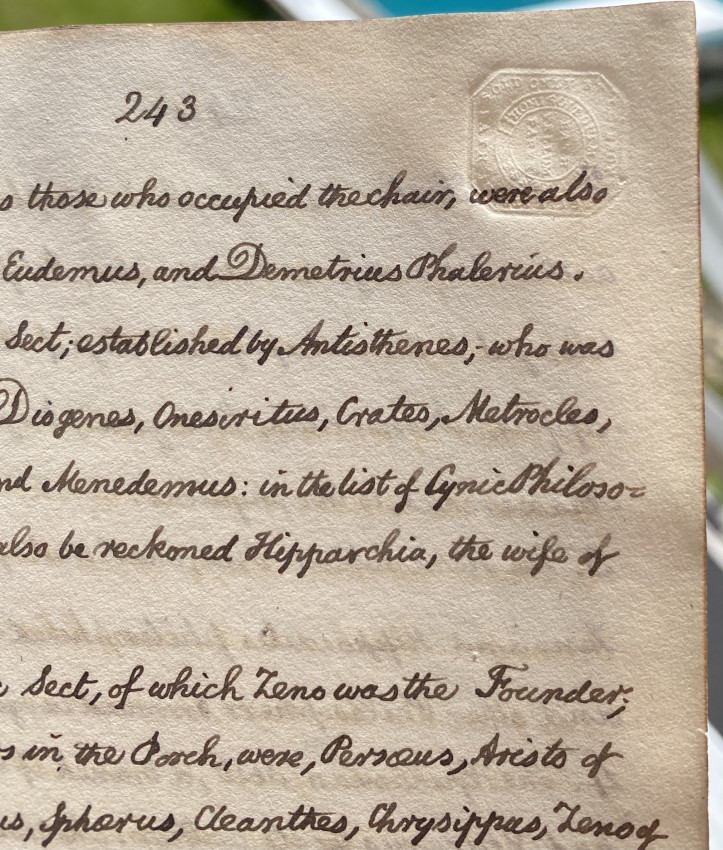 243
those who occupied the chair, were also
Eudemus, and Demetrius Phalerius.
Sect; established by Antisthenes, - who was
Diogenes, Onesicritus, Crates, Metrocles,
Menedemus: in the list of Cynic Philoso=
also be reckoned Hipparchia, the wife of
Sect, of which Zeno was the Founder;
in the Porch, were, Persæus, Aristo of
Sphærus, Cleanthes, Chrysippus, Zeno of